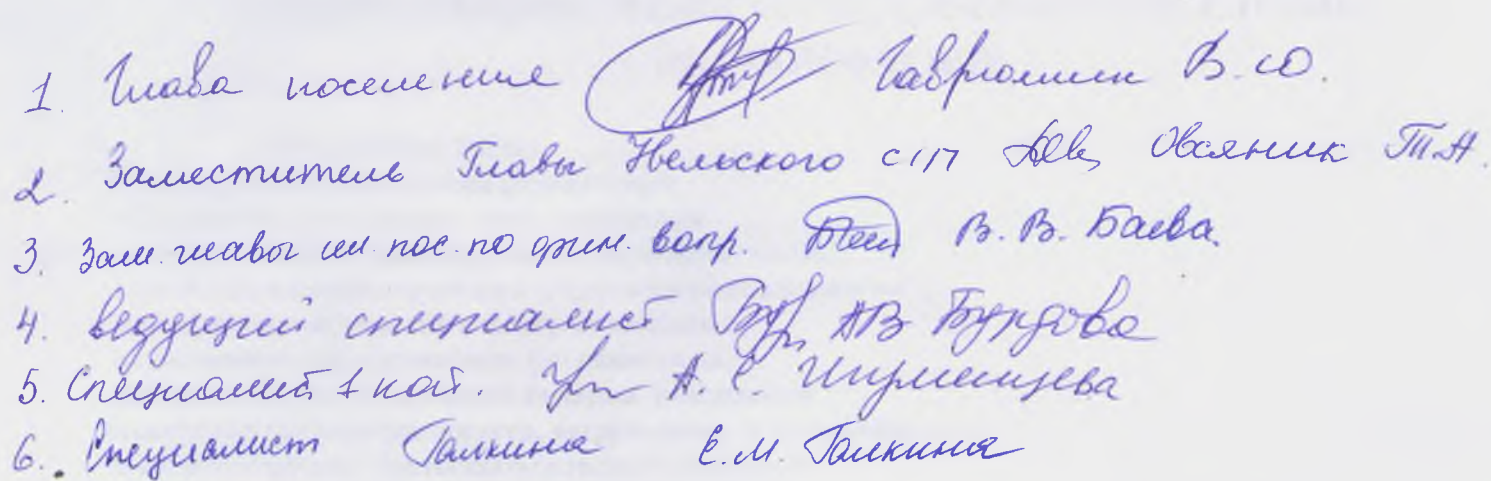 1. Глава поселение Гаврюшин В.Ю.
2. Заместитель Главы Нельского с/п Овсяник Т.А.
3. Зам. главы по фин. вопр. В.В. Баева.
4. Ведущий специалист АВ Бурдова
5. Специалист 1 кат. А. С.
6. Специалист Галкина Е.М. Галкина